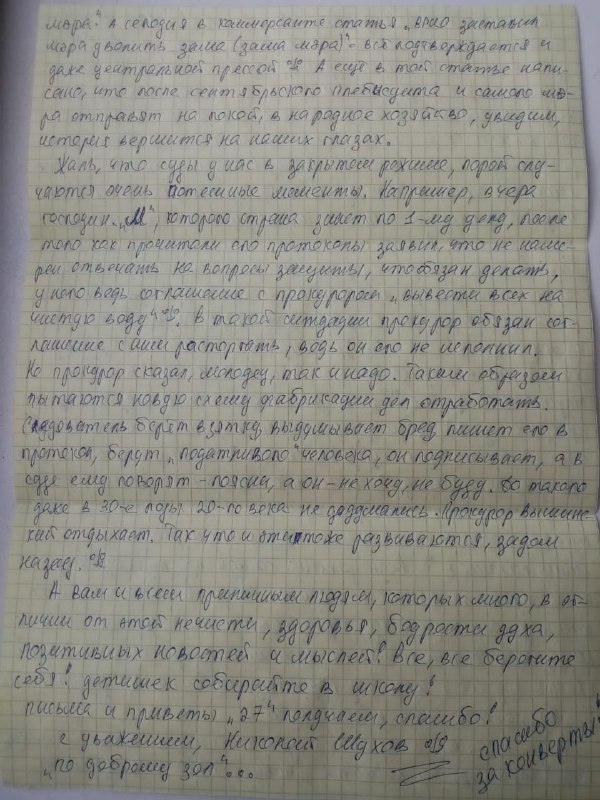 мэра". А сегодня в коммерсанте статья "врио заставил
мэра уволить зама (зама мэра)" - всё подтверждается и
даже центральной прессой. А ещё в той статье напи-
сано, что после сентябрьского плебисцита и самого мэ-
ра отправят на покой, в народное хозяйство, увидим,
история вершится на наших глазах.
Жаль, что суды у нас в закрытом режиме, порой слу-
чаются очень потешные моменты. Например, вчера
господин "М", которого страна знает по 1-му делу, после
того как прочитали его протоколы заявил, что не наме-
рен отвечать на вопросы защиты, что обязан делать,
у него ведь соглашение с прокурором "вывести всех на
чистую воду". В такой ситуации прокурор обязан сог-
лашение с ним расторгать, ведь он его не исполнил.
Но прокурор сказал, молодец, так и надо. Таким образом
пытаются новую схему фабрикации дел отработать.
Следователь берёт взятку, выдумывает бред, пишет его в
протокол, берут "податливого" человека, он подписывает, а в
суде ему говорят - поясни, а он - не хочу, не буду. До такого
даже в 30-е годы 20-го века не додумались. Прокурор Вышинс-
кий отдыхает. Так что и эти тоже развиваются, задом
наперёд.
А вам и всем приличным людям, которых много, в от-
личии от этой нечисти, здоровья, бодрости духа,
позитивных новостей и мыслей! Все, все берегите
себя! детишек собирайте в школу!
письма и приветы "27" получаем, спасибо!
с уважением, Николай Шухов
"по доброму зол"...
спасибо
за конверты!